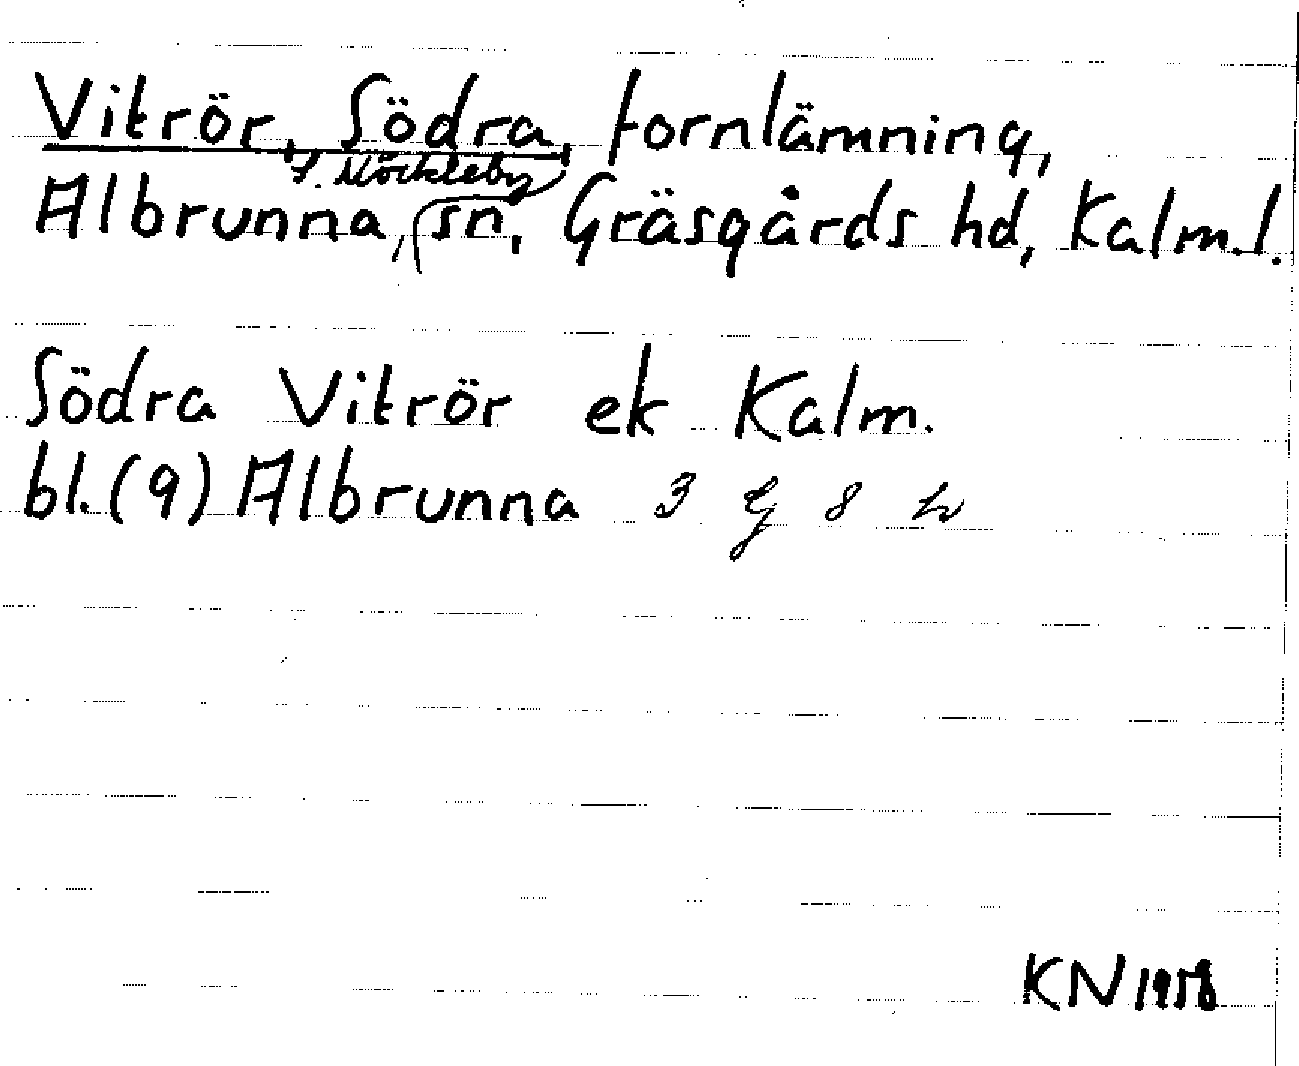 Vitrör, Södra, fornlämning,
S. Möckleby
Albrunna, sn, Gräsgårds hd, Kalm.l.
Södra Vitrör ek Kalm.
bl.(9) Albrunna 3 G 8 h
KN 1958